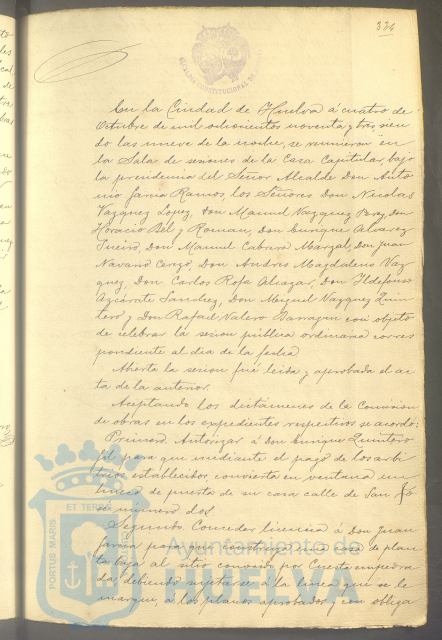 324
ALCALDIA CONSTITUCIONAL DE
En la Ciudad de Huelva á cuatro de
Octubre de mil ochocientos noventa y tres, sien
do las nueve de la noche, se reunieron en
la Sala de sesiones de la Casa Capitular, bajo
la presidencia del Señor Alcalde Don Anto
nio Garcia Ramos, los Señores Don Nicolas
Vazquez Lopez, Don Manuel Vazquez Perez, Don
Horacio Bel y Roman, Don Enrique Alvarez
Don Manuel Cabrera Don Juan
Navarro Don Andres Magdalena Vaz
quez, Don Carlos Rofa Alcazar, Don Ildefonso
Azcarate Sanchez, Don Miguel Vazquez Quin
tero y Don Rafael Valero Barragan con objeto
de celebrar la sesion pública ordinaria corres
pondiente al dia de la fecha
Abierta la sesion fué leida y aprobada el ac
ta de la anterior.
Aceptando los dictámenes de la Comision
de obras en los expedientes respectivos se acordó:
Primero. Autorizar á Don Enrique Quintero
para que mediante el pago de los arbi
trios establecidos, convierta en ventana un
hueco de puerta de su casa calle de San Jo
sé numero dos.
Segundo. Conceder licencia á Don Juan
Garcia para que construya una casa de plan
ta baja al sitio conocido por Cuesta empedra
da debiendo sujetarse á la linea que se le
marque, a los planos aprobados y con obliga
PORTUS MARIS ET TERRAE
Ayuntamiento de
HUELVA